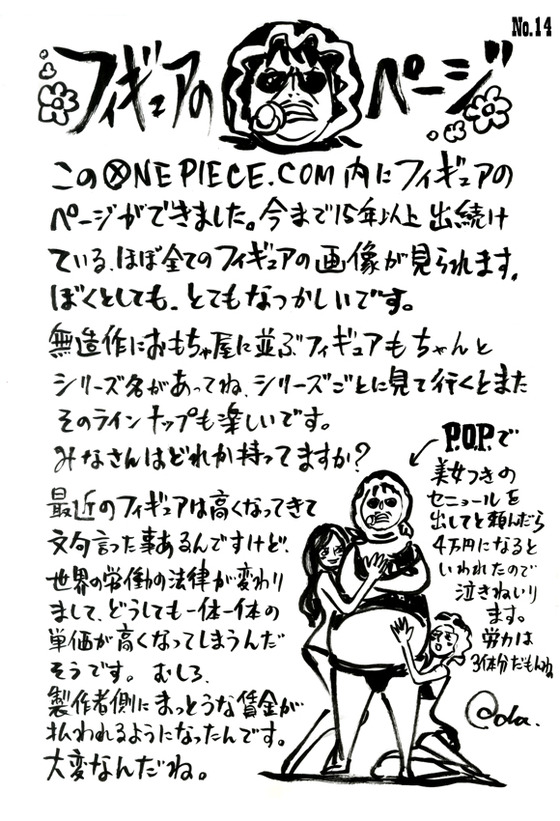 No.14
フィギュアの ページ
このONE PIECE.COM内にフィギュアの
ページができました。今まで15年以上出続け
ている、ほぼ全てのフィギュアの画像が見られます。
ぼくとしても、とてもなつかしいです。
無造作におもちゃ屋に並ぶフィギュアもちゃんと
シリーズ名があってね、シリーズごとに見て行くとまた
そのラインナップも楽しいです。
みなさんはどれか持ってますか?
最近のフィギュアは高くなってきて
文句言った事あるんですけど、
世界の労働の法律が変わり
まして、どうしても一体一体の
単価が高くなってしまうんだ
そうです。 むしろ、
製作者側にまっとうな賃金が
払われるようになったんです。
大変なんだね。
P.O.P.で
美女つきの
セニョールを
出してと頼んだら
4万円になると
いわれたので
泣きねいり
ます。
労力は
3体分だもんね
Oda.